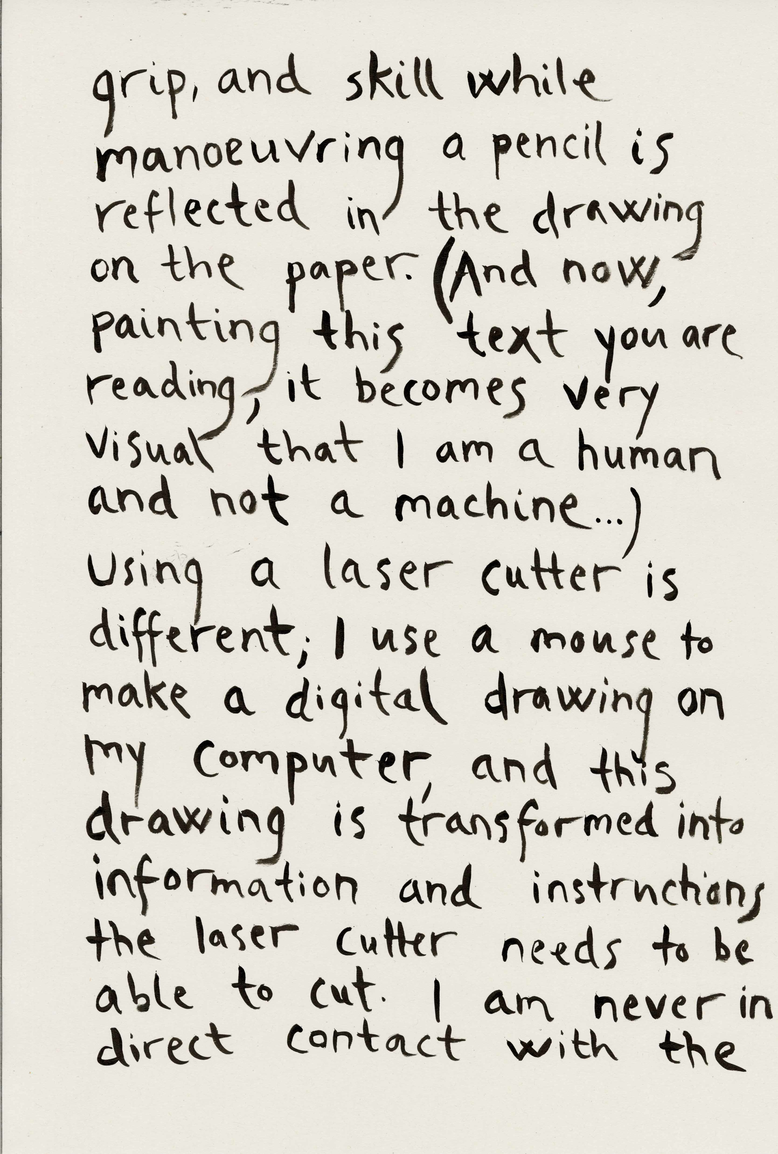 grip, and skill while
manoeuvring a pencil is
reflected in the drawing
on the paper. (And now,
painting this text you are
reading, it becomes very
visual that I am a human
and not a machine...)
Using a laser cutter is
different; I use a mouse to
make a digital drawing on
my computer, and this
drawing is transformed into
information and instructions
the laser cutter needs to be
able to cut. I am never in
direct contact with the